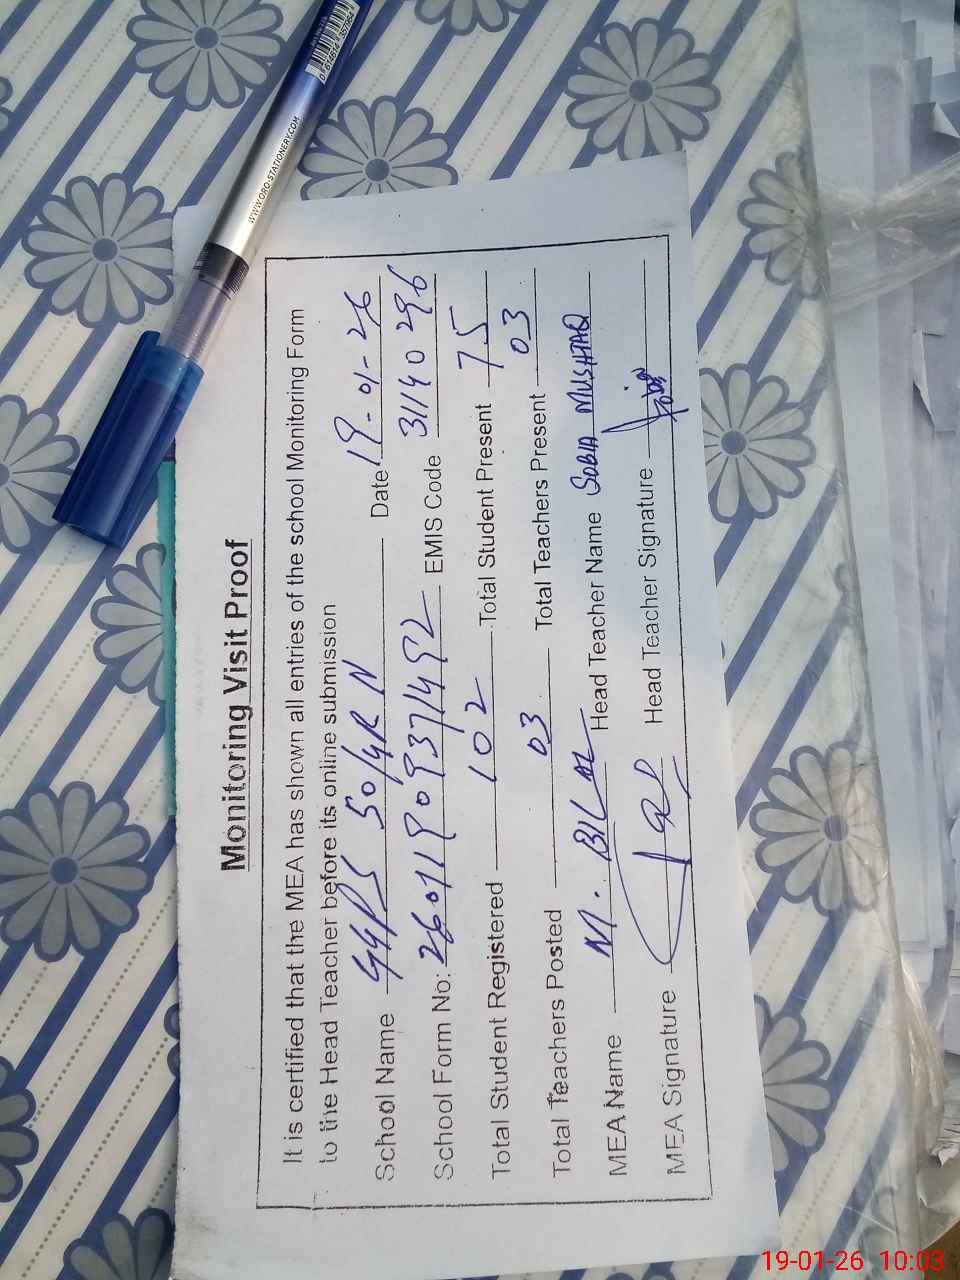 Monitoring Visit Proof
It is certified that the MEA has shown all entries of the school Monitoring Form
to the Head Teacher before its online submission
School Name GGPS 50/4R N Date 19-01-26
School Form No: 26011909371492 EMIS Code 31140296
Total Student Registered 102 Total Student Present 75
Total Teachers Posted 03 Total Teachers Present 03
MEA Name M. BILAL Head Teacher Name SOBIA MUSHTAQ
MEA Signature Head Teacher Signature
WWW.ORO-STATIONERY.COM
19-01-26 10:03